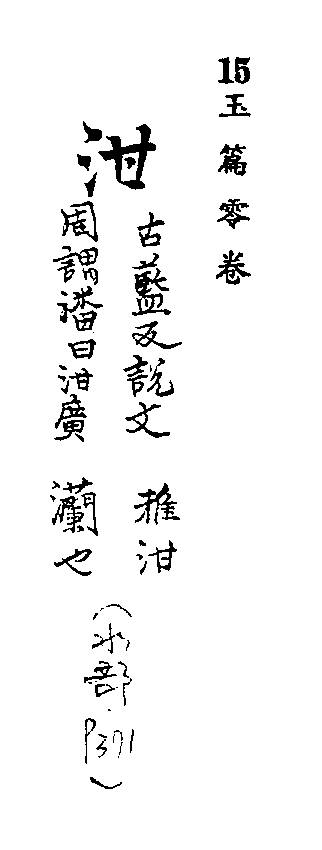 15玉篇零卷
泔
古藍反説文
周謂潘曰泔廣
雅泔
瀾也
(水部·P371)